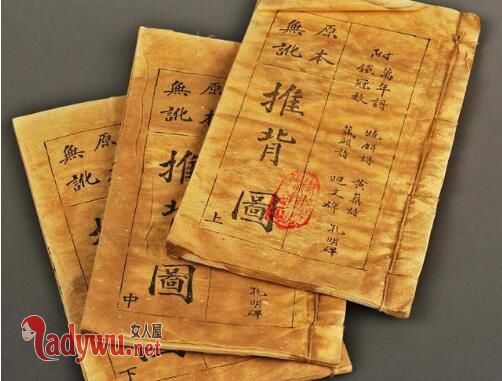 原本
無訛
推背圖
上
附萬年詩
鐵冠数
燒餅
黃蘗詩
藏頭詩
碑
孔明碑
原
無訛
推
圖
中
孔明碑
原
無訛
下
女人屋
Ladywu.net